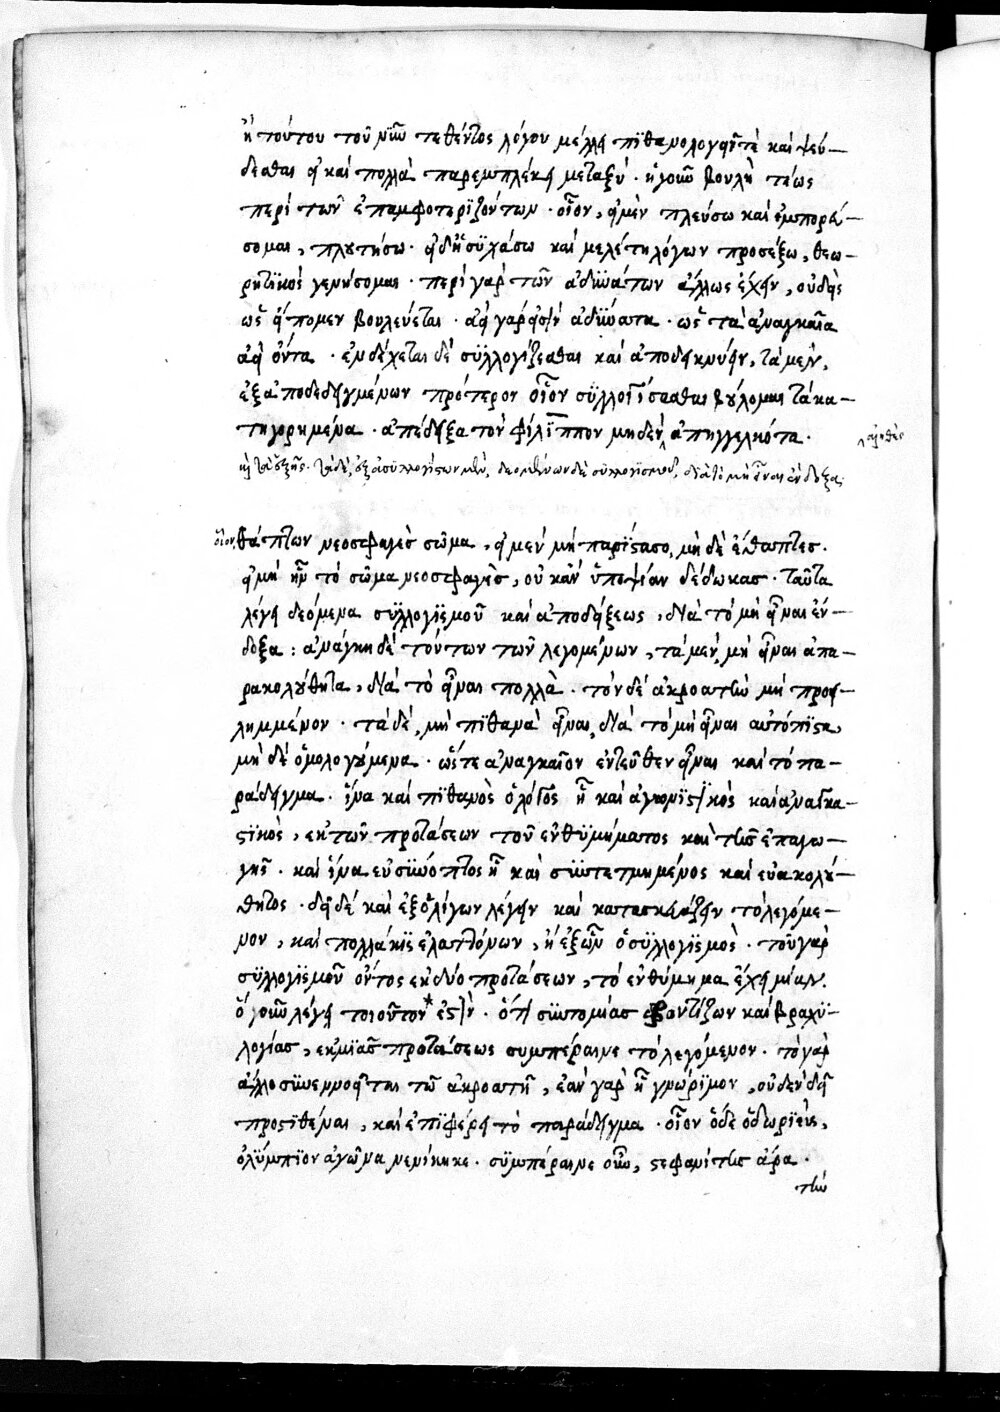 ἢ τούτου τοῦ νῦν τεθέντος λόγου μέλλει πιθανολογεῖν τε καὶ ψεύ-
δεσθαι εἰ καὶ πολλὰ παρεμπλέκει μεταξύ · ἡ γοῦν βουλὴ τέως
περὶ τῶν ἐπαμφοτεριζόντων · οἷον, εἰ μὲν πλεύσω καὶ ἐμπορεύ-
σομαι, πλουτήσω · εἰ δὲ ἡσυχάσω καὶ μελέτῃ λόγων προσέξω, θεω-
ρητικὸς γενήσομαι · περὶ γὰρ τῶν ἀδυνάτων ἄλλως ἔχειν, οὐδεὶς
ὡς εἴπομεν βουλεύεται · ἀεὶ γάρ εἰσιν ἀδύνατα · ὡς τὰ ἀναγκαῖα
ἀεὶ ὄντα · ἐνδέχεται δὲ συλλογίζεσθαι καὶ ἀποδεικνύειν, τὰ μὲν,
ἐξ ἀποδεδειγμένων πρότερον οἷον συλλογίσασθαι βούλομαι τὰ κα-
τηγορημένα · ἀπέδειξα τὸν φίλιππον μηδὲν ἀπηγγελκότα ·
ἀληθὲς
καὶ τὰ ἑξῆς · τὰ δὲ, ἐξ ἀσυλλογίστων μὲν, δεομένων δὲ συλλογισμοῦ, διὰ τὸ μὴ εἶναι ἔνδοξα ·
οἷον, θάπτων νεοσφαγὲς σῶμα, εἰ μὲν μὴ παρίστασο, μὴ δὲ ἔθαπτες ·
εἰ μὴ ἦν τὸ σῶμα νεοσφαγὲς, οὐκ ἂν ὑποψίαν δέδωκας · ταῦτα
λέγει δεόμενα συλλογισμοῦ καὶ ἀποδείξεως, διὰ τὸ μὴ εἶναι ἔν-
δοξα : ἀνάγκη δὲ τούτων τῶν λεγομένων, τὰ μὲν μὴ εἶναι ἀπα-
ρακολούθητα, διὰ τὸ εἶναι πολλὰ · τὸν δὲ ἀκροατὴν μὴ προει-
λημμένον · τὰ δὲ, μὴ πιθανὰ εἶναι, διὰ τὸ μὴ εἶναι αὐτόπιστα,
μὴ δὲ ὁμολογούμενα · ὥστε ἀναγκαῖον ἐντεῦθεν εἶναι καὶ τὸ πα-
ράδειγμα · ἵνα καὶ πιθανὸς ὁ λόγος ᾖ καὶ ἀγωνιστικὸς καὶ ἀναγκα-
στικὸς, ἐκ τῶν προτάσεων τοῦ ἐνθυμήματος καὶ τῆς ἐπαγω-
γῆς · καὶ ἵνα εὐσύνοπτος ᾖ καὶ συντετμημένος καὶ εὐακολού-
θητος · δεῖ δὲ καὶ ἐξ ὀλίγων λέγειν καὶ κατασκευάζειν τὸ λεγόμε-
νον, καὶ πολλάκις ἐλαττόνων, ἢ ἐξ ὧν ὁ συλλογισμὸς · τοῦ γὰρ
συλλογισμοῦ ὄντος ἐκ δύο προτάσεων, τὸ ἐνθύμημα ἔχει μίαν.
ὃ γοῦν λέγει τοιοῦτον* ἐστὶν · ὅτι συντομίας φροντίζων καὶ βραχυ-
λογίας, ἐκ μιᾶς προτάσεως συμπέραινε τὸ λεγόμενον · τὸ γὰρ
ἄλλο συνεννοεῖται τῷ ἀκροατῇ, ἐὰν γὰρ ᾖ γνώριμον, οὐδὲν δεῖ
προστιθέναι, καὶ ἐπιφέρει τὸ παράδειγμα · οἷον ὅδε ὁ δωριεὺς,
ὀλύμπιον ἀγῶνα νενίκηκε · συμπέραινε οὖν, στεφανίτης ἄρα ·
τὴν